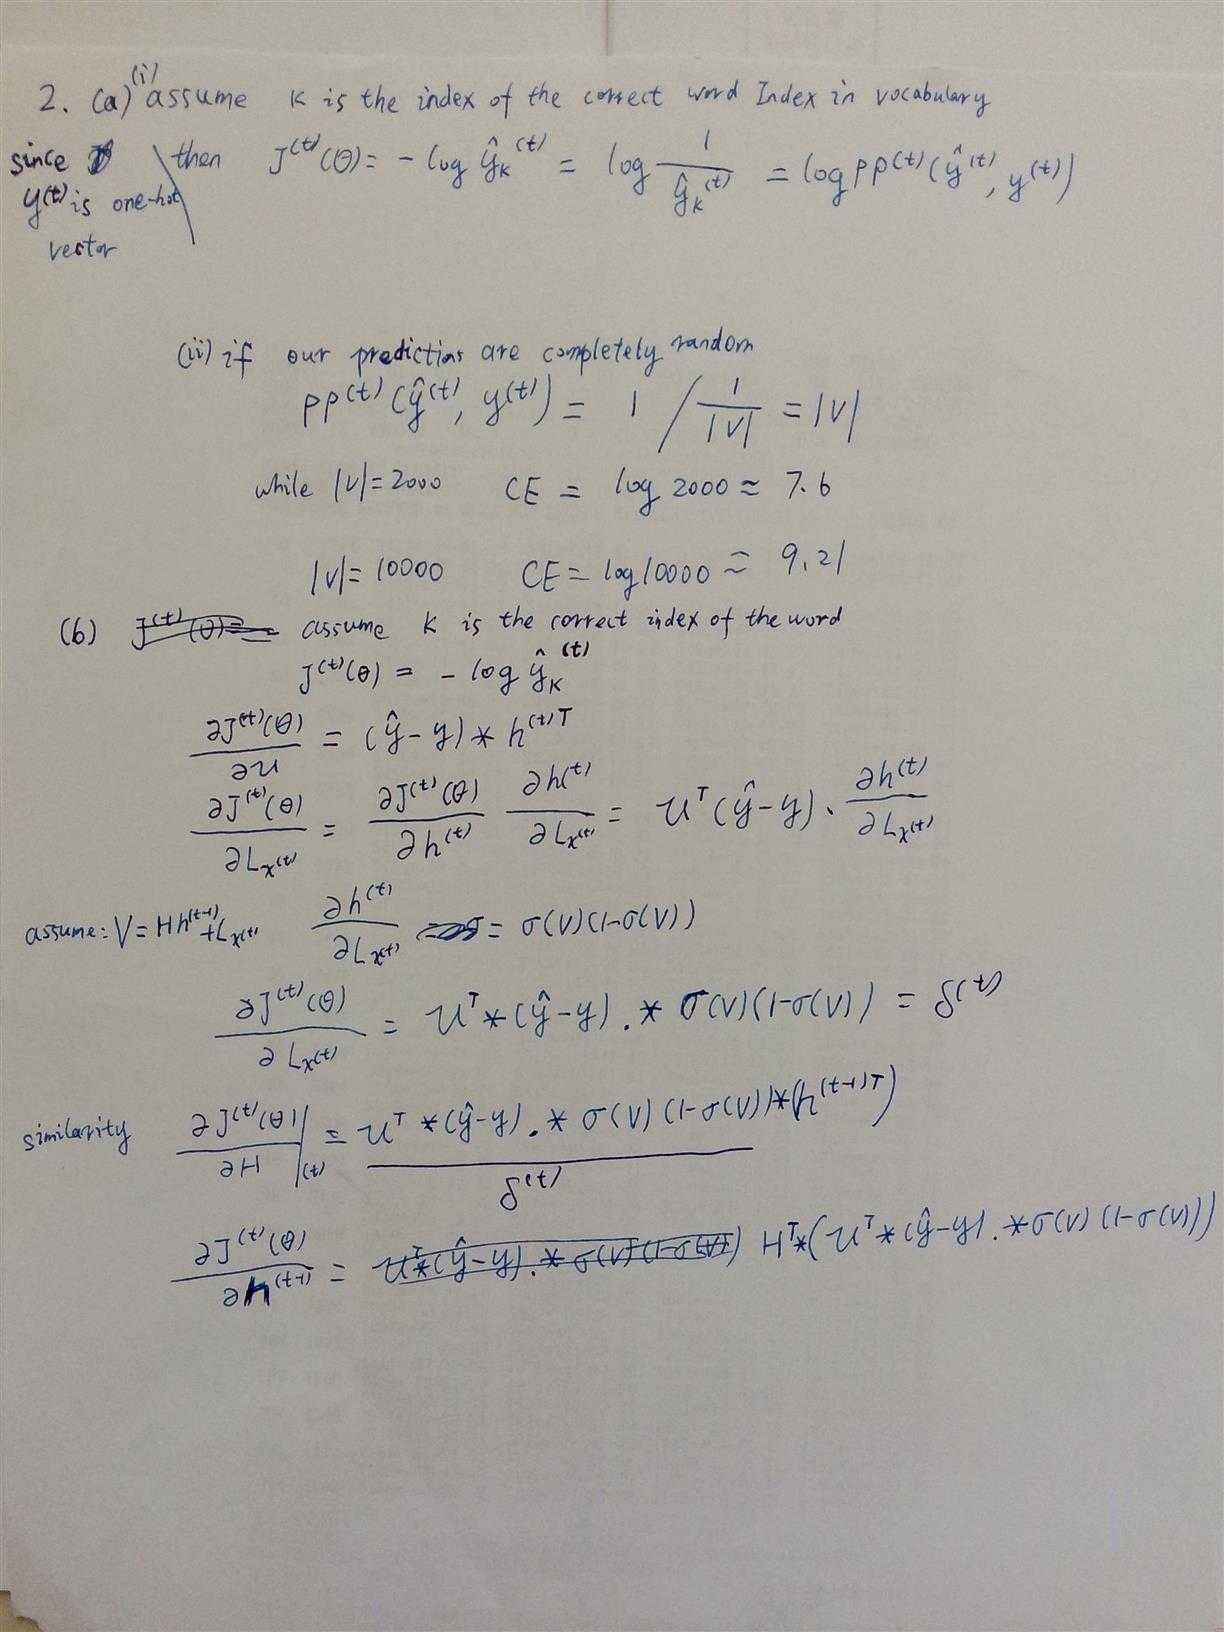 2. (a) (i) assume K is the index of the correct word Index in vocabulary
since y^(t) is one-hot vector
then J^(t)(θ) = - log ŷ_k^(t) = log 1/ŷ_k^(t) = log PP^(t)(ŷ^(t), y^(t))
(ii) if our predictins are completely random
PP^(t)(ŷ^(t), y^(t)) = 1 / 1/|V| = |V|
while |V| = 2000 CE = log 2000 ≈ 7.6
|V| = 10000 CE = log 10000 ≈ 9.21
(b) J^(t)(θ) = assume K is the correct index of the word
J^(t)(θ) = - log ŷ_K^(t)
∂J^(t)(θ)/∂U = (ŷ - y) * h^(t)T
∂J^(t)(θ)/∂L_x(t) = ∂J^(t)(θ)/∂h^(t) ∂h^(t)/∂L_x(t) = U^T (ŷ - y) · ∂h^(t)/∂L_x(t)
assume: V = Hh^(t-1) + L_x(t) ∂h^(t)/∂L_x(t) = σ(V)(1-σ(V))
∂J^(t)(θ)/∂L_x(t) = U^T * (ŷ - y) .* σ(V)(1-σ(V)) = δ^(t)
similarity ∂J^(t)(θ)/∂H |_(t) = U^T * (ŷ - y) .* σ(V)(1-σ(V)) * (h^(t-1)T)
δ^(t)
∂J^(t)(θ)/∂h^(t-1) = U^T * (ŷ - y) .* σ(V)(1-σ(V)) H^T * (U^T * (ŷ - y) .* σ(V)(1-σ(V)))